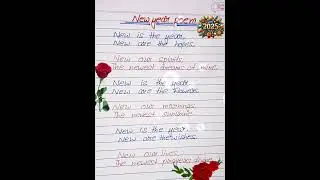 New year poem
2025
New is the year,
New are the hopes.
New our spirits
The newest dreams of mine.
New is the year
New are the flowers.
New our mornings,
The newest sunshine
New is the year.
New are the wishes.
New our lives.
The newest